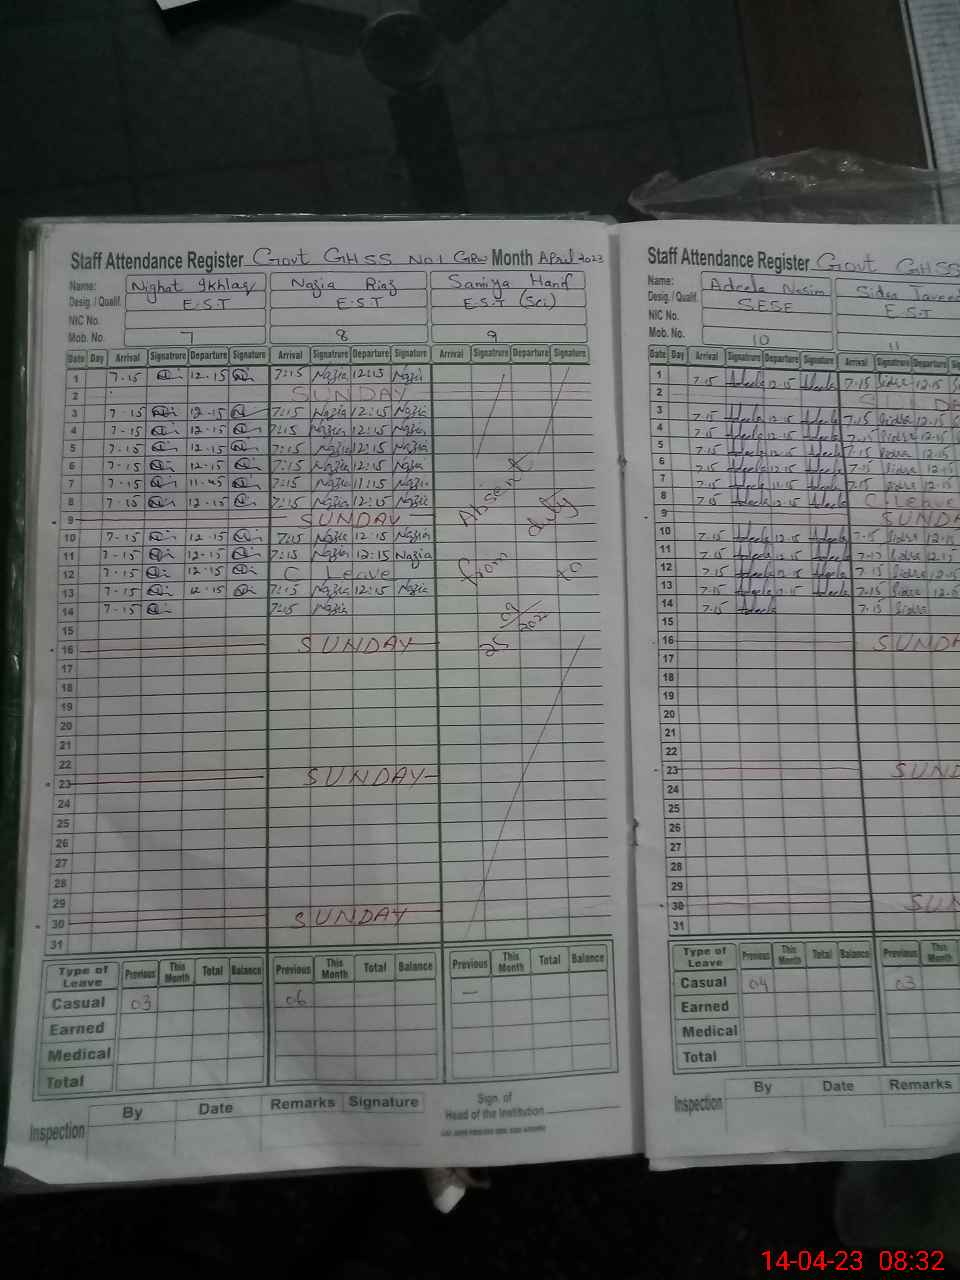 Staff Attendance Register Govt GHSS No.1 GRW Month April 2023
Name: Nighat Ikhlaq Nazia Riaz Samiya Hanif
Desig. / Qualif. E.S.T E.S.T E.S.T (Sci)
NIC No.
Mob. No. 7 8 9
Date Day Arrival Signatrure Departure Signature Arrival Signatrure Departure Signature Arrival Signatrure Departure Signature
1 7-15 12-15 7:15 Nazia 12:15 Nazia
2 SUNDAY
3 7-15 12-15 7:15 Nazia 12:15 Nazia
4 7-15 12-15 7:15 Nazia 12:15 Nazia
5 7-15 12-15 7:15 Nazia 12:15 Nazia
6 7-15 12-15 7:15 Nazia 12:15 Nazia
7 7-15 11-45 7:15 Nazia 11:15 Nazia
8 7-15 12-15 7:15 Nazia 12:15 Nazia
9 SUNDAY
10 7-15 12-15 7:15 Nazia 12:15 Nazia
11 7-15 12-15 7:15 Nazia 12:15 Nazia
12 7-15 12-15 C Leave
13 7-15 12-15 7:15 Nazia 12:15 Nazia
14 7-15 7:15 Nazia
Absent
from duty
25
15
16 SUNDAY
17
18
19
20
21
22
23 SUNDAY
24
25
26
27
28
29
30 SUNDAY
31
Type of Leave Previous This Month Total Balance Previous This Month Total Balance Previous This Month Total Balance
Casual 03 06 —
Earned
Medical
Total
Inspection By Date Remarks Signature
Sign. of
Head of the Institution
Staff Attendance Register Govt GHSS
Name: Adeela Nasim Sidra Javeed
Desig. / Qualif. SESE E.S.T
NIC No.
Mob. No. 10 11
Date Day Arrival Signatrure Departure Signature Arrival Signatrure Departure
1 7-15 Adeela 12-15 Adeela 7-15 Sidra 12-15
2
3 7-15 Adeela 12-15 Adeela 7-15 Sidra 12-15
4 7-15 Adeela 12-15 Adeela 7-15 Sidra 12-15
5 7-15 Adeela 12-15 Adeela 7-15 Sidra 12-15
6 7-15 Adeela 12-15 Adeela 7-15 Sidra 12-15
7 7-15 Adeela 11-15 Adeela 7-15 Sidra
8 7-15 Adeela 12-15 Adeela C-Leave
9 SUNDA
10 7-15 Adeela 12-15 Adeela 7-15 Sidra 12-15
11 7-15 Adeela 12-15 Adeela Sidra 12-15
12 7-15 Adeela 12-15 Adeela 7-15 Sidra 12-15
13 7-15 Adeela 12-15 Adeela 7-15 Sidra
14 7-15 Adeela 7-15 Sidra
15
16 SUNDA
17
18
19
20
21
22
23 SUND
24
25
26
27
28
29
30 SUN
31
Type of Leave Previous This Month Total Balance Previous This Month
Casual 04 03
Earned
Medical
Total
Inspection By Date Remarks
14-04-23 08:32